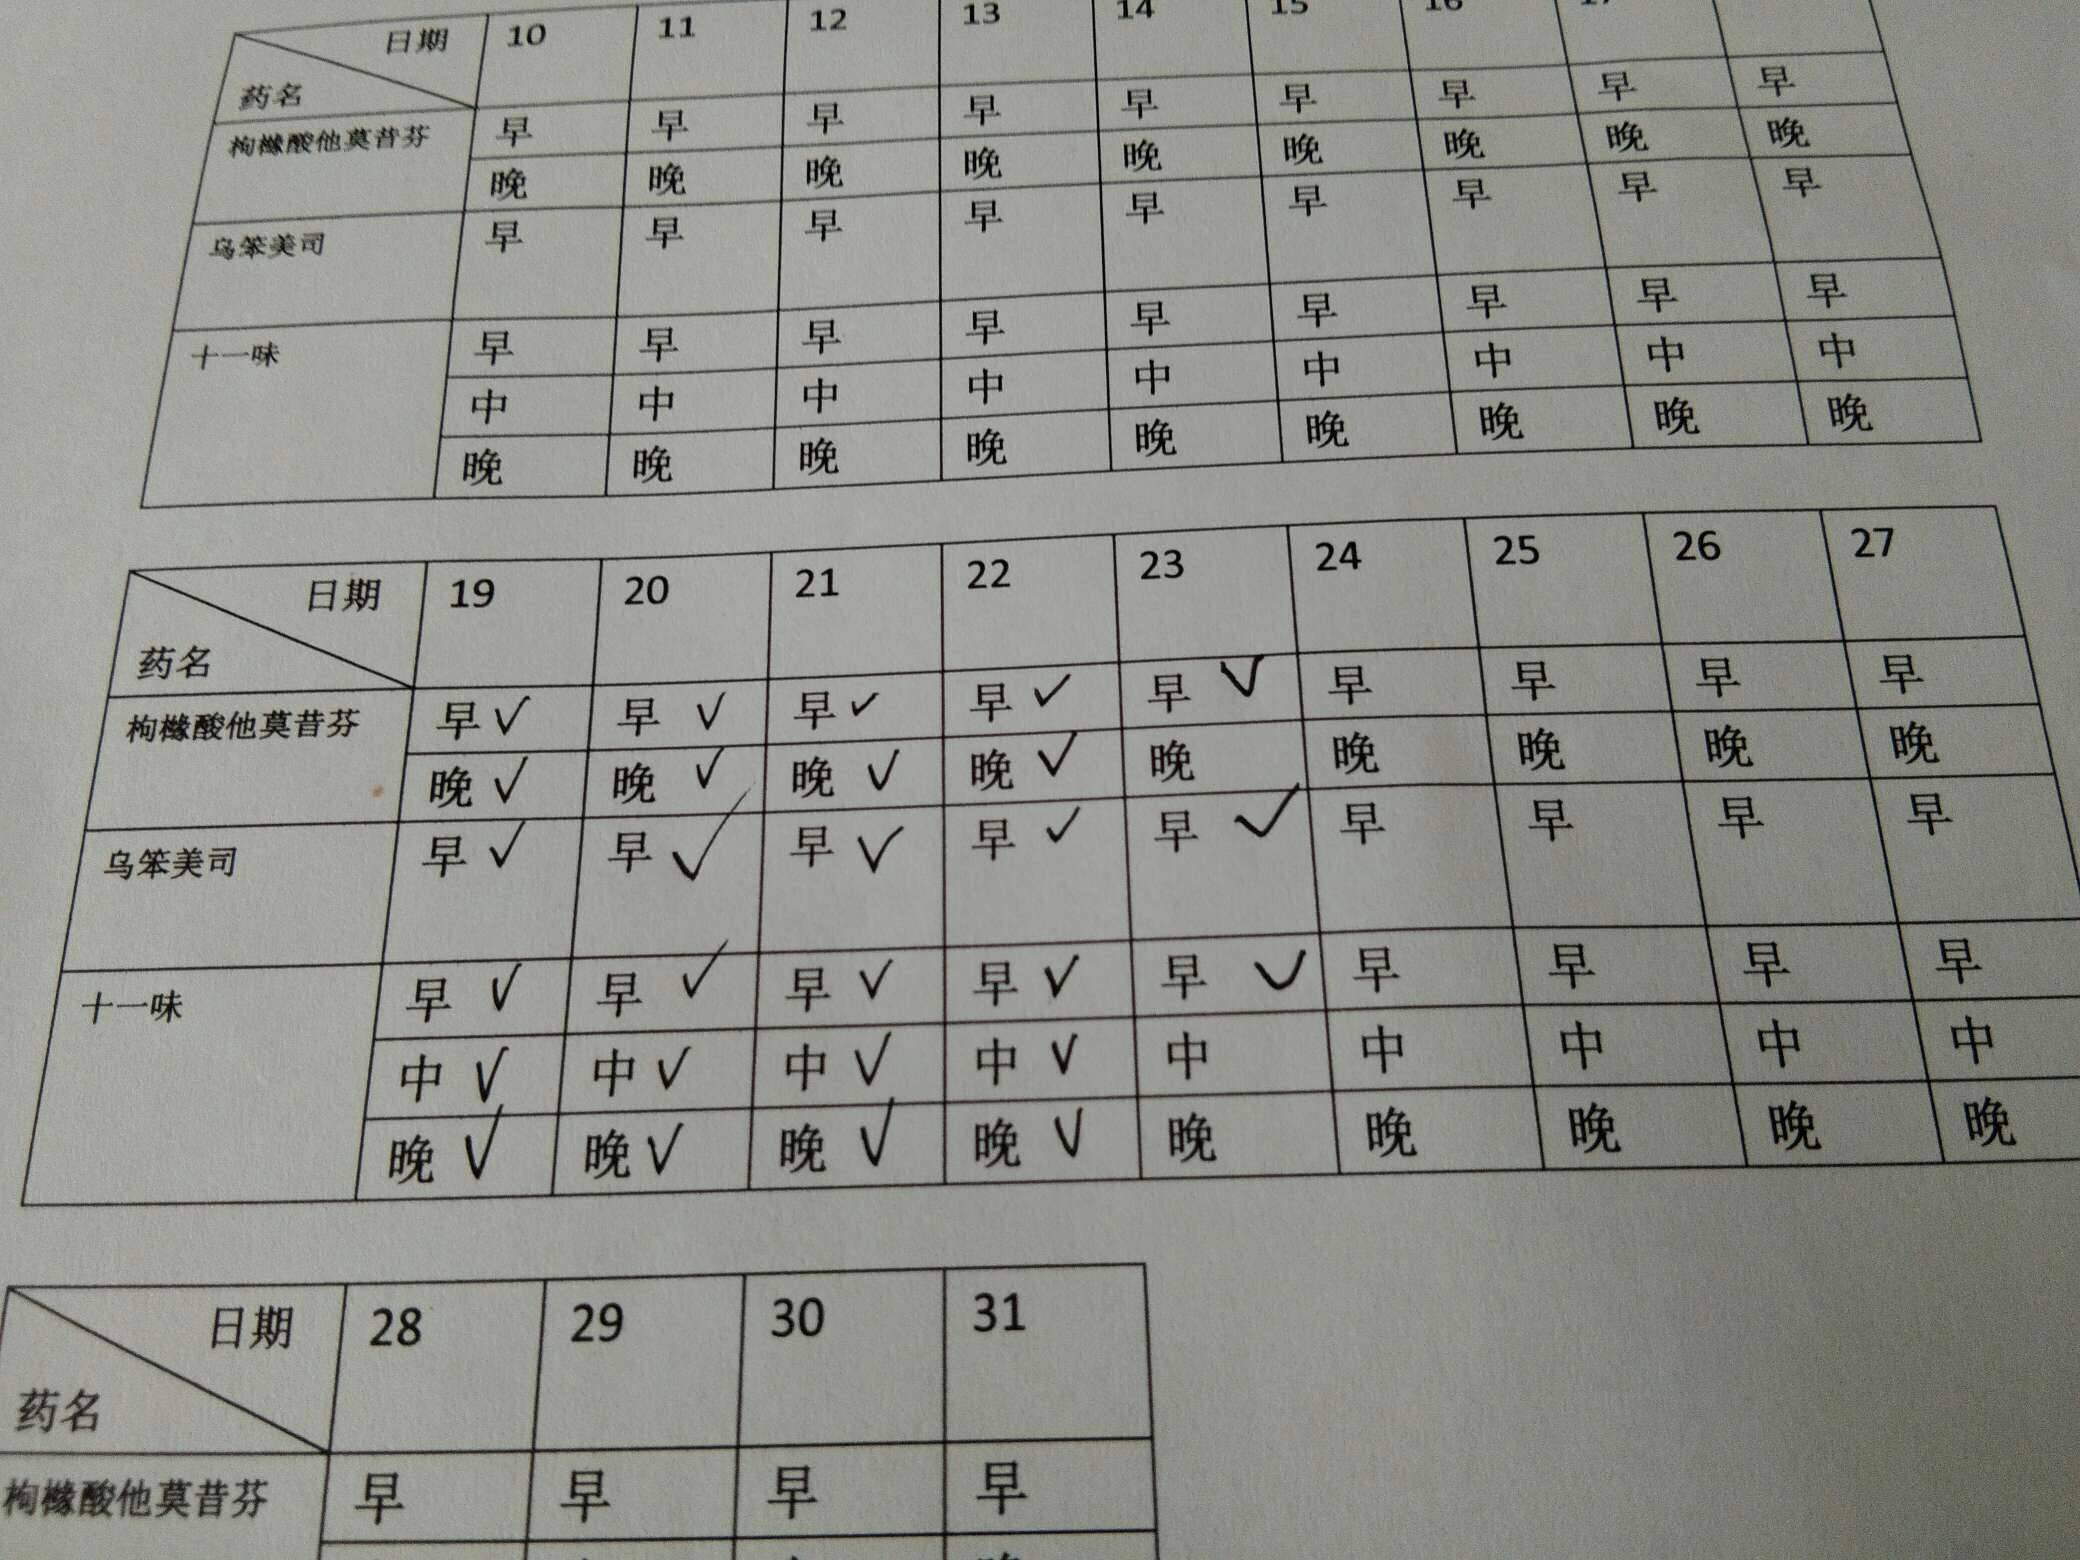 日期 10 11 12 13 14 15 16 17
药名
枸橼酸他莫昔芬 早 早 早 早 早 早 早 早 早
晚 晚 晚 晚 晚 晚 晚 晚 晚
乌笨美司 早 早 早 早 早 早 早 早 早
十一味 早 早 早 早 早 早 早 早 早
中 中 中 中 中 中 中 中 中
晚 晚 晚 晚 晚 晚 晚 晚 晚
日期 19 20 21 22 23 24 25 26 27
药名
枸橼酸他莫昔芬 早 ✓ 早 ✓ 早 ✓ 早 ✓ 早 ✓ 早 早 早 早
晚 ✓ 晚 ✓ 晚 ✓ 晚 ✓ 晚 晚 晚 晚 晚
乌笨美司 早 ✓ 早 ✓ 早 ✓ 早 ✓ 早 ✓ 早 早 早 早
十一味 早 ✓ 早 ✓ 早 ✓ 早 ✓ 早 ✓ 早 早 早 早
中 ✓ 中 ✓ 中 ✓ 中 ✓ 中 中 中 中 中
晚 ✓ 晚 ✓ 晚 ✓ 晚 ✓ 晚 晚 晚 晚 晚
日期 28 29 30 31
药名
枸橼酸他莫昔芬 早 早 早 早